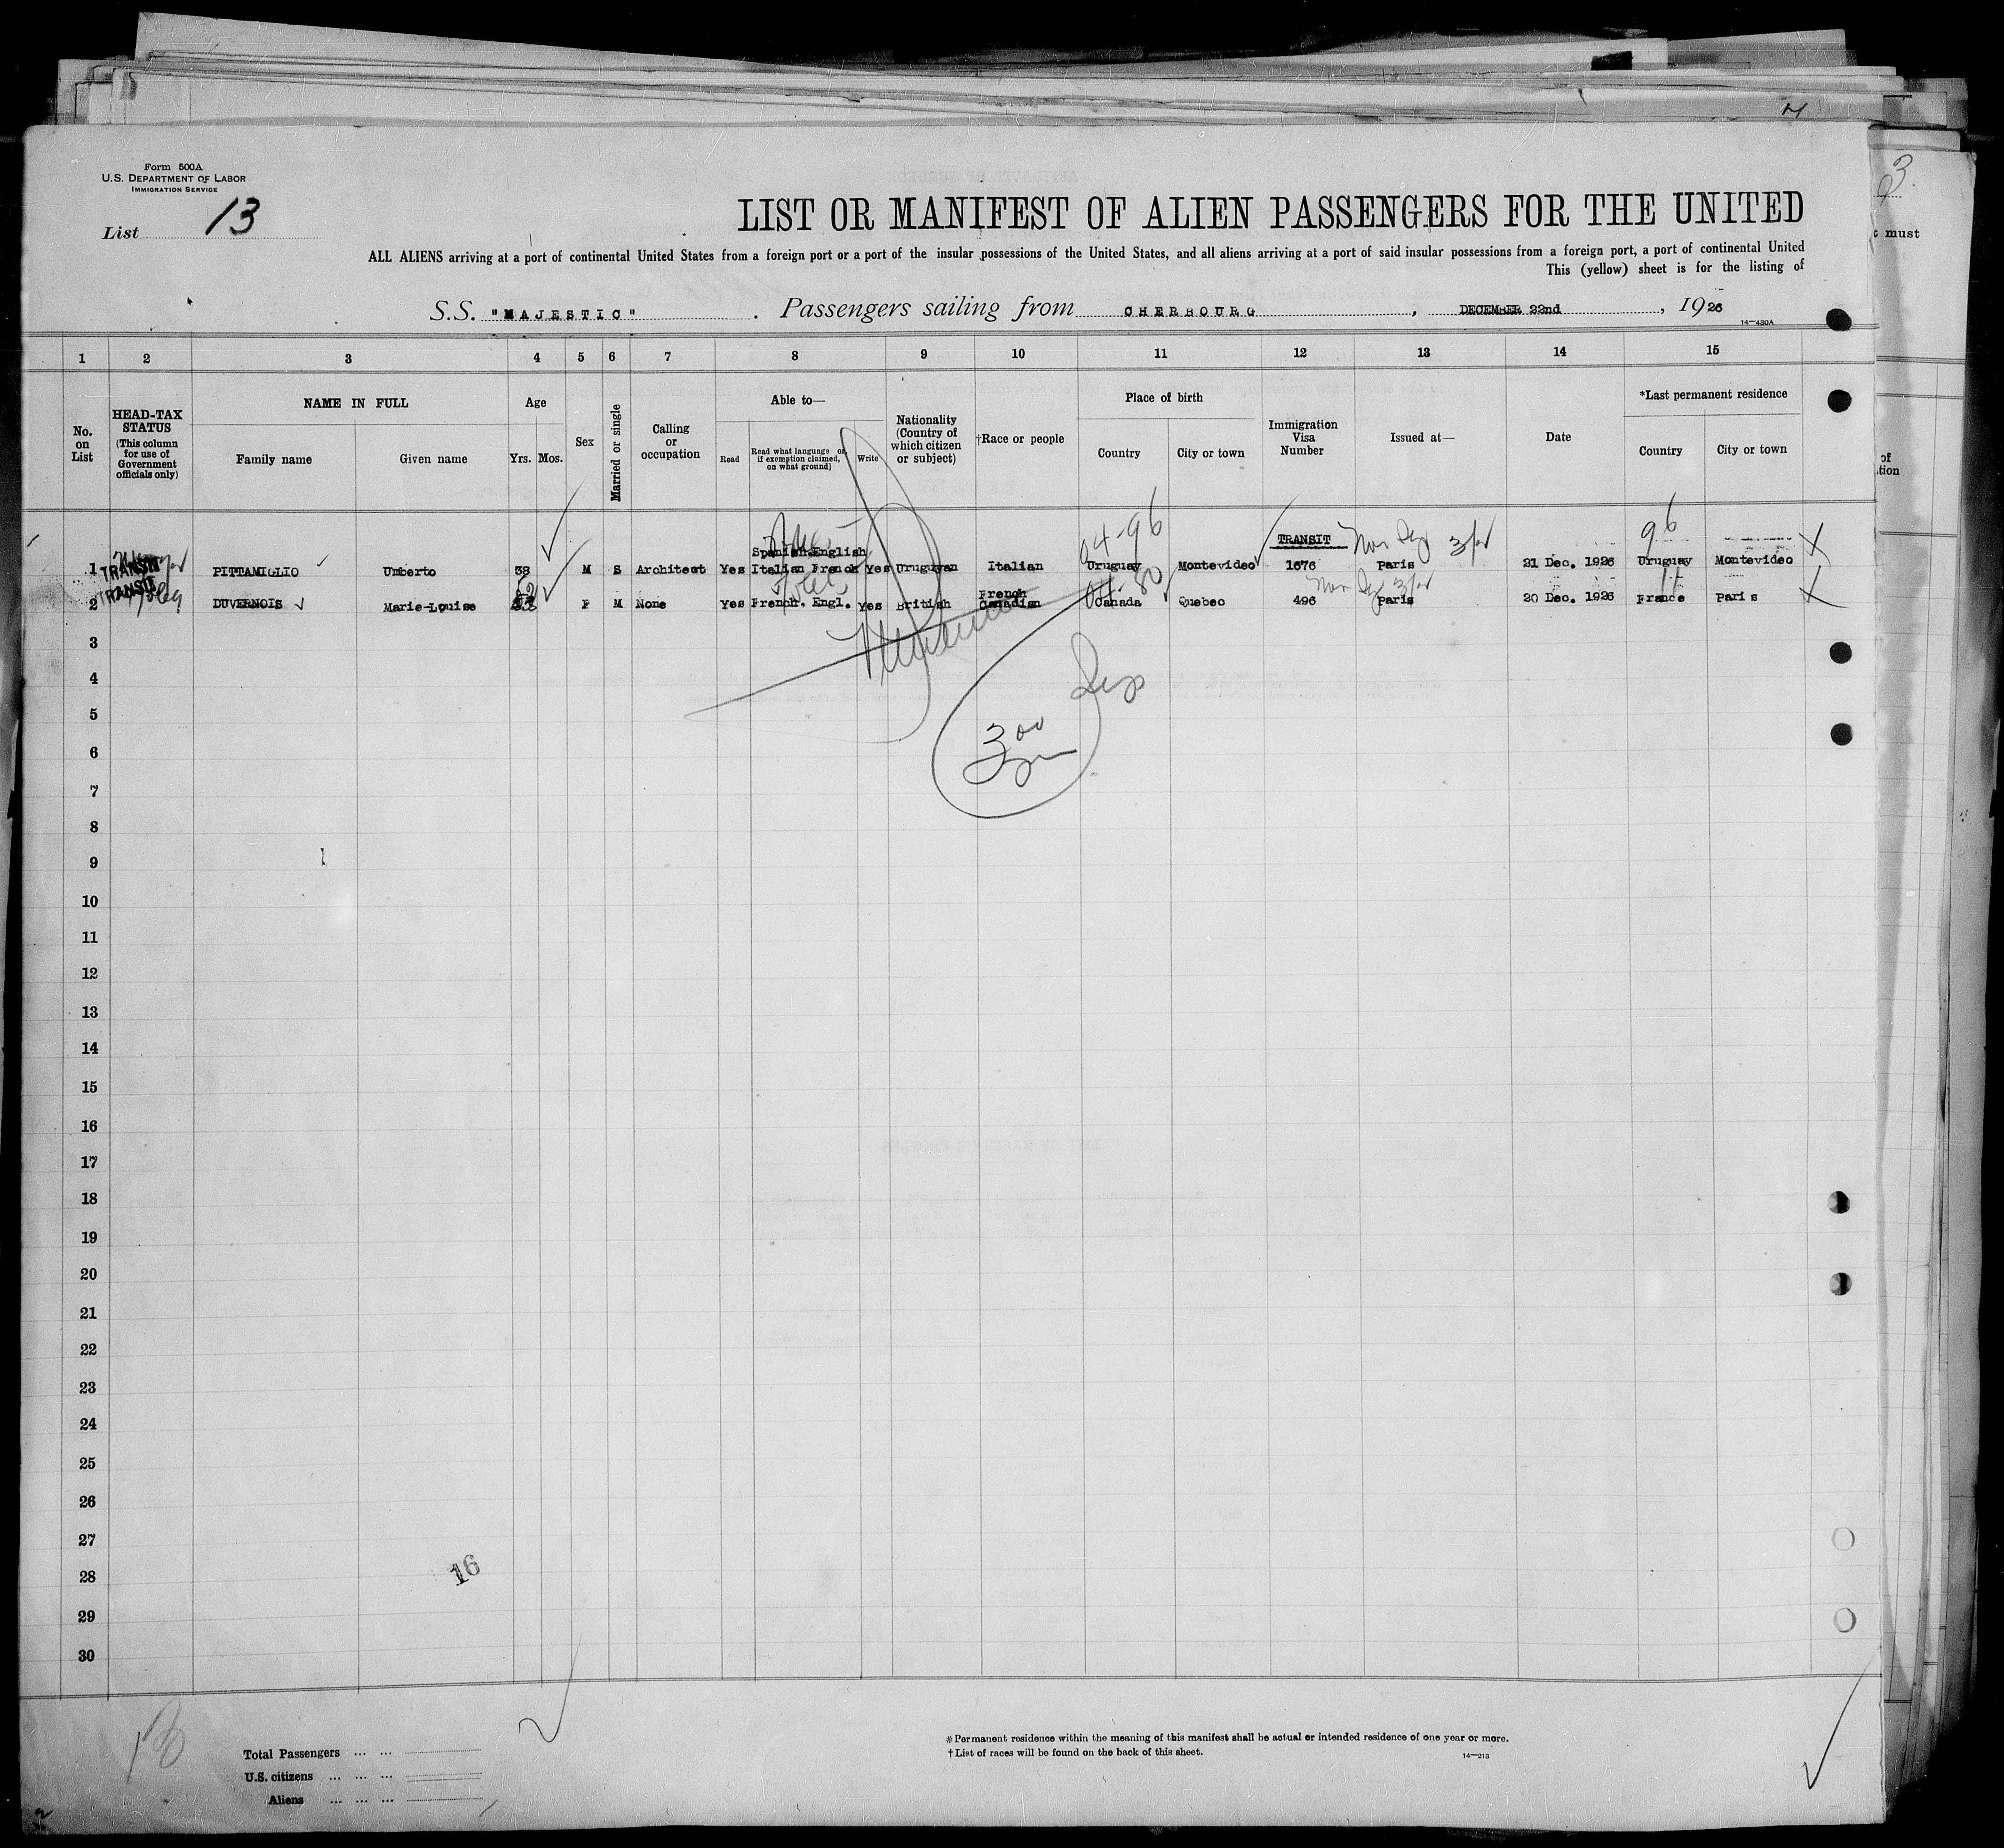 Form 500A
U.S. DEPARTMENT OF LABOR
IMMIGRATION SERVICE
List 13
3
must
LIST OR MANIFEST OF ALIEN PASSENGERS FOR THE UNITED
ALL ALIENS arriving at a port of continental United States from a foreign port or a port of the insular possessions of the United States, and all aliens arriving at a port of said insular possessions from a foreign port, a port of continental United
This (yellow) sheet is for the listing of
S.S. "MAJESTIC". Passengers sailing from CHERBOURG, DECEMBER 22nd, 1926
14—430A
1 2 3 4 5 6 7 8 9 10 11 12 13 14 15
No. on List
HEAD-TAX STATUS
(This column for use of Government officials only)
NAME IN FULL
Family name
Given name
Age
Yrs. Mos.
Sex
Married or single
Calling or occupation
Able to—
Read
Read what language or, if exemption claimed, on what ground)
Write
Nationality (Country of which citizen or subject)
†Race or people
Place of birth
Country
City or town
Immigration Visa Number
Issued at—
Date
*Last permanent residence
Country
City or town
of
tion
04-96
96
TRANSIT
1 TRANSIT PITTAMIGLIO Umberto 38 M S Architect Yes Spanish English Italian French Yes Uruguyan Italian Uruguay Montevideo 1676 Paris 21 Dec. 1926 Uruguay Montevideo X
2 TRANSIT DUVERNOIS Marie-Louise F M None Yes French. Engl. Yes British French Canadian Canada Quebec 496 Paris 20 Dec. 1926 France Paris X
3
4
5
6
7
8
9
10
11
12
13
14
15
16
17
18
19
20
21
22
23
24
25
26
27
28
29
30
16
Total Passengers ... ...
U.S. citizens ... ... ...
Aliens ... ... ...
*Permanent residence within the meaning of this manifest shall be actual or intended residence of one year or more.
†List of races will be found on the back of this sheet.
14—213